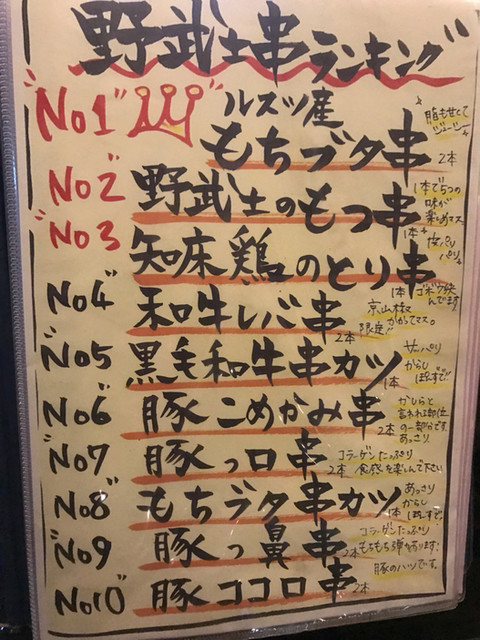 野武士串ランキング
No1 ルスツ産
もちブタ串 2本
脂もせてて
ジューシー
No2 野武士のもつ串 1本
1本で5つの
味が
楽しめマス。
No3 知床鶏のとり串 1本
皮パリ
パリ
No4 和牛レバ串 2本
んでます。
京山椒
かかってマス。
限定!!
No5 黒毛和牛串カツ 1本
サッパリ
からし
ぽんずで!!
No6 豚こめかみ串 2本
かしらと
言われる部位
の一部分です。
あっさり
No7 豚っ口串 2本
コラーゲンたっぷり
食感を楽しんで下さい
No8 もちブタ串カツ 1本
あっさり
からし
ぽんずで。
No9 豚っ鼻串 2本
コラーゲンたっぷり
もちもち弾力あります!
No10 豚ココロ串 2本
豚のハツです。